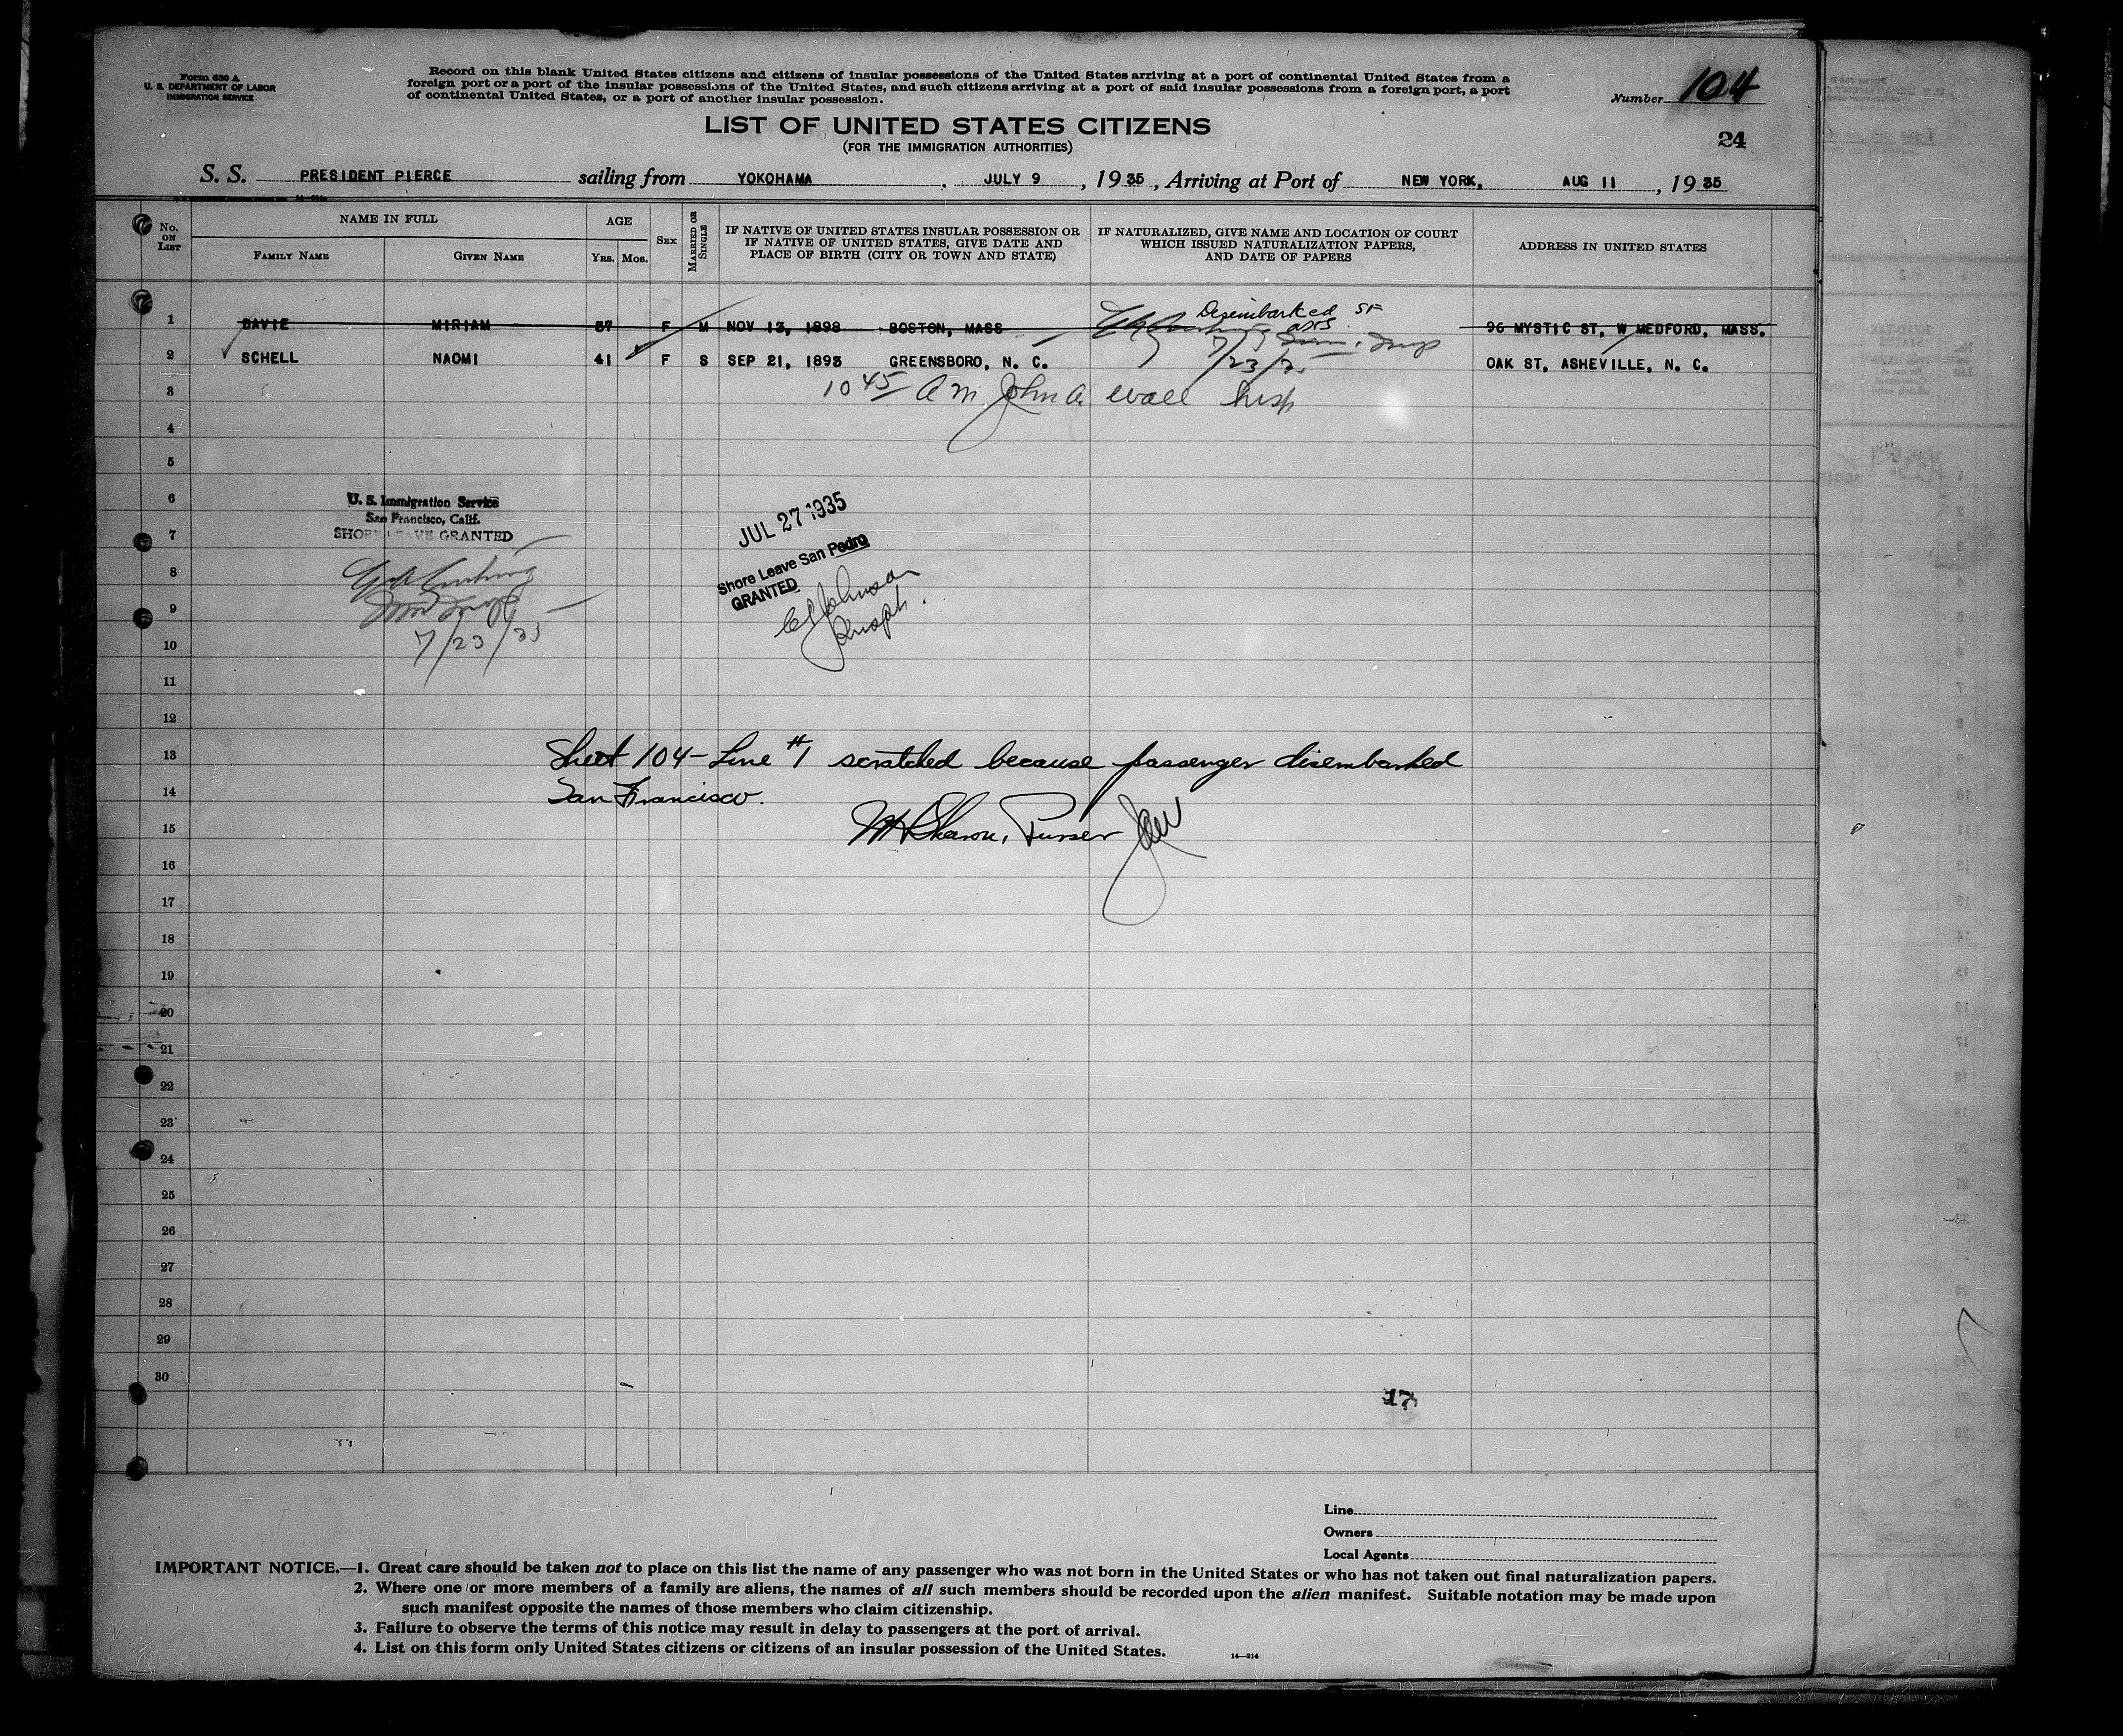 Form 630 A
U. S. DEPARTMENT OF LABOR
IMMIGRATION SERVICE
Record on this blank United States citizens and citizens of insular possessions of the United States arriving at a port of continental United States from a
foreign port or a port of the insular possessions of the United States, and such citizens arriving at a port of said insular possessions from a foreign port, a port
of continental United States, or a port of another insular possession.
Number 104
LIST OF UNITED STATES CITIZENS
(FOR THE IMMIGRATION AUTHORITIES)
24
S. S. PRESIDENT PIERCE sailing from YOKOHAMA, JULY 9, 1935, Arriving at Port of NEW YORK, AUG 11, 1935
No. ON LIST
NAME IN FULL
FAMILY NAME
GIVEN NAME
AGE
YRS. MOS.
SEX
MARRIED OR SINGLE
IF NATIVE OF UNITED STATES INSULAR POSSESSION OR
IF NATIVE OF UNITED STATES, GIVE DATE AND
PLACE OF BIRTH (CITY OR TOWN AND STATE)
IF NATURALIZED, GIVE NAME AND LOCATION OF COURT
WHICH ISSUED NATURALIZATION PAPERS,
AND DATE OF PAPERS
ADDRESS IN UNITED STATES
Disembarked SF
1 DAVIE MIRIAM 37 F M NOV 13, 1898 BOSTON, MASS 96 MYSTIC ST, W MEDFORD, MASS.
2 SCHELL NAOMI 41 F S SEP 21, 1893 GREENSBORO, N. C. 7/23/ OAK ST, ASHEVILLE, N. C.
3 10 45 A M John A. Wall Insp
4
5
6
U. S. Immigration Service
San Francisco, Calif.
SHORE LEAVE GRANTED
7
7/23/35
JUL 27 1935
Shore Leave San Pedro
GRANTED
Johnson
8
9
10
11
12
13 Sheet 104 - Line #1 scratched because passenger disembarked
14 San Francisco.
15 Purser
16
17
18
19
20
21
22
23
24
25
26
27
28
29
30
17
Line
Owners
Local Agents
IMPORTANT NOTICE.—1. Great care should be taken not to place on this list the name of any passenger who was not born in the United States or who has not taken out final naturalization papers.
2. Where one or more members of a family are aliens, the names of all such members should be recorded upon the alien manifest. Suitable notation may be made upon
such manifest opposite the names of those members who claim citizenship.
3. Failure to observe the terms of this notice may result in delay to passengers at the port of arrival.
4. List on this form only United States citizens or citizens of an insular possession of the United States.
14—214